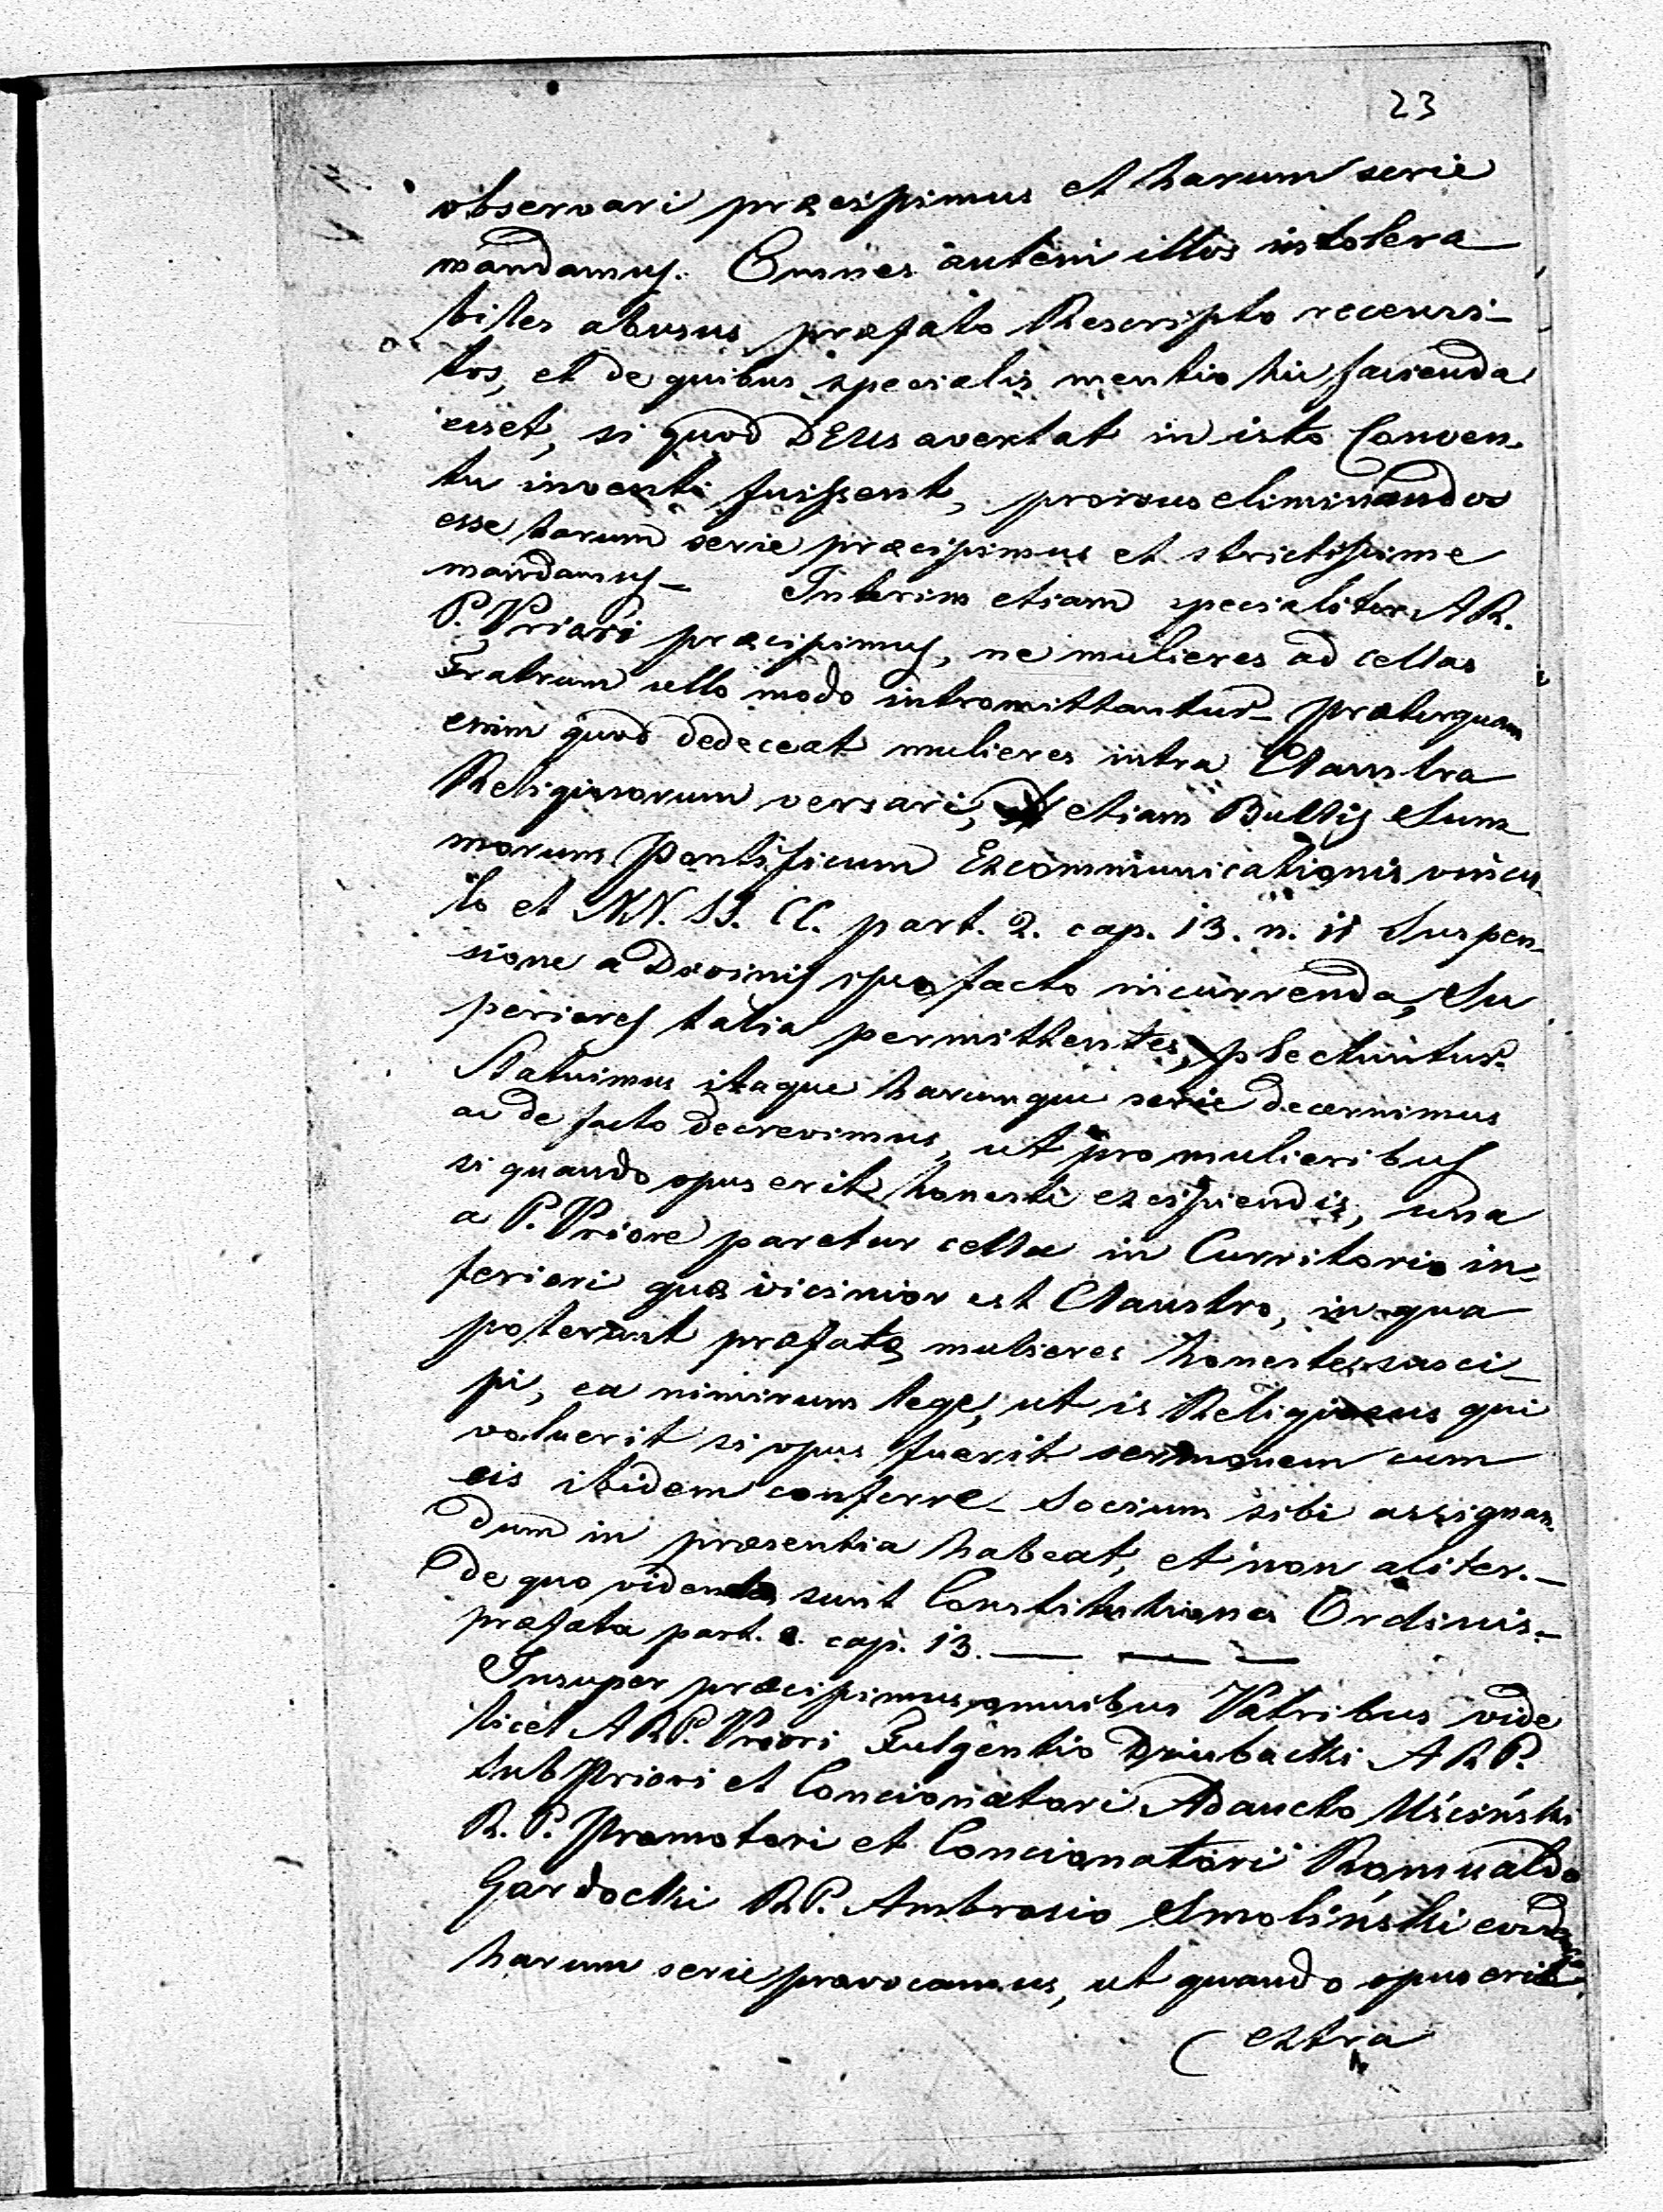 23
observari præcipimus et harum serie
mandamus. Omnes autem illos intolera
biles abusus præfato Rescripto recensi-
tos, et de quibus specialis mentio hic facienda
esset, si quod DEUS avertat in isto Conven-
tu inventi fuissent, prorsus eliminandos
esse harum serie præcipimus et strictissime
mandamus— Interim etiam specialiter AR.
P. Priori præcipimus, ne mulieres ad cellas
Fratrum ullo modo intromittantur— præterquam
enim quod dedeceat mulieres intra Claustra
Religiosorum versari, etiam Bullis Sum
morum Pontificum Excommunicationis vincu
lo et NN. SS. CC. part. 2. cap. 13. n. 11 Suspen-
sione a Divinis ipso facto incurrenda, Su
periores talia permittentes, plectuntur.
Statuimus itaque harumque serie decernimus
ac de facto decrevimus, ut pro mulieribus
si quando opus erit honeste excipiendis, una
a P. Priore paretur cella in Curritorio in-
feriori quæ vicinior est Claustro, in qua
poterunt præfatæ mulieres honeste susci-
pi, ea nimirum lege, ut is Religiosus qui
voluerit si opus fuerit sermonem cum
eis ibidem conferre— Socium sibi assignan-
dum in præsentia habeat, et non aliter.—
de quo videndæ sunt Constitutiones Ordinis.—
præfata part. 2. cap. 13. — — —
Insuper præcipimus omnibus Patribus vide
licet ARP. Priori Fulgentio Dziubacki ARP.
SubPriori et Concionatori Adaucto Uściński
R. P. Promotori et Concionatori Romualdo
Gardocki RP. Ambrosio Smoliński
harum serie provocamus, ut quando opus erit
extra